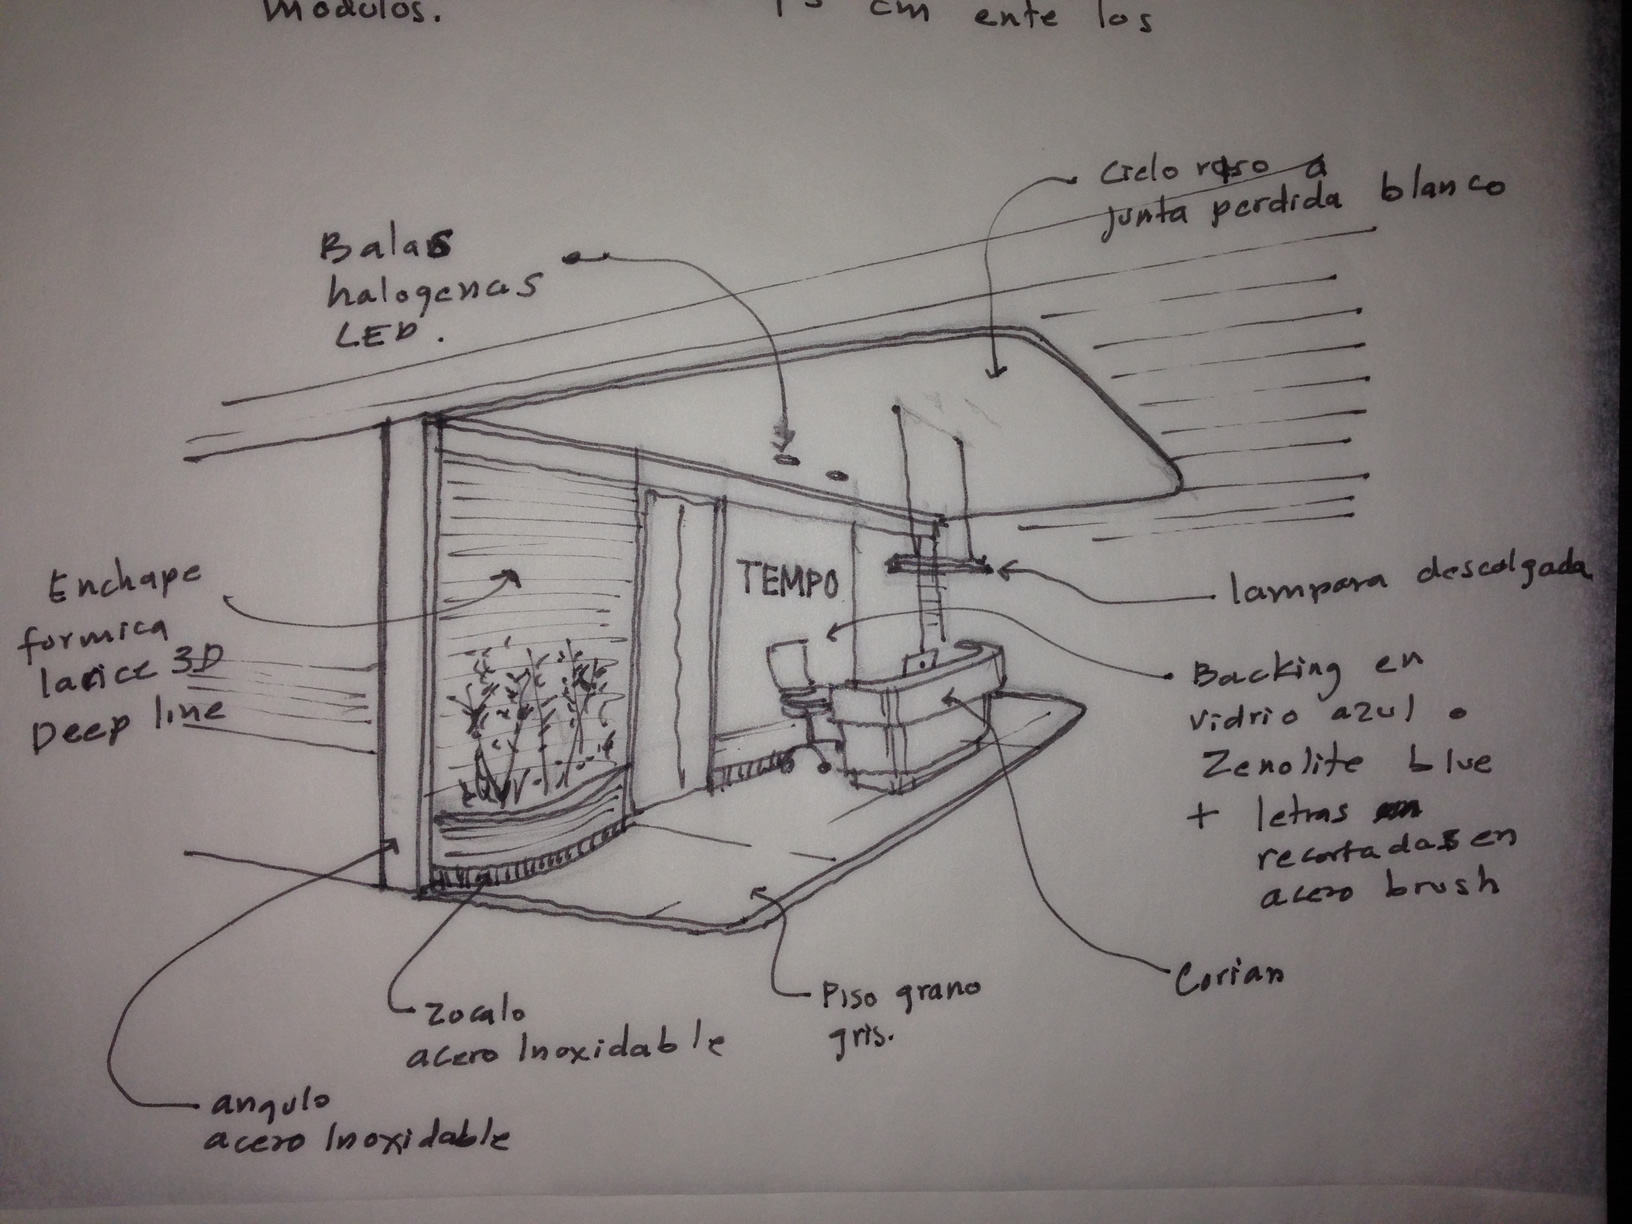 Modulos.
cm ente los
Cielo raso a
junta perdida blanco
Balas
halogenas
LED.
Enchape
formica
larice 3D
Deep line
TEMPO
lampara descolgada
Backing en
vidrio azul o
Zenolite blue
+ letras en
recortadas en
acero brush
Corian
Piso grano
gris.
Zocalo
acero Inoxidable
angulo
acero Inoxidable